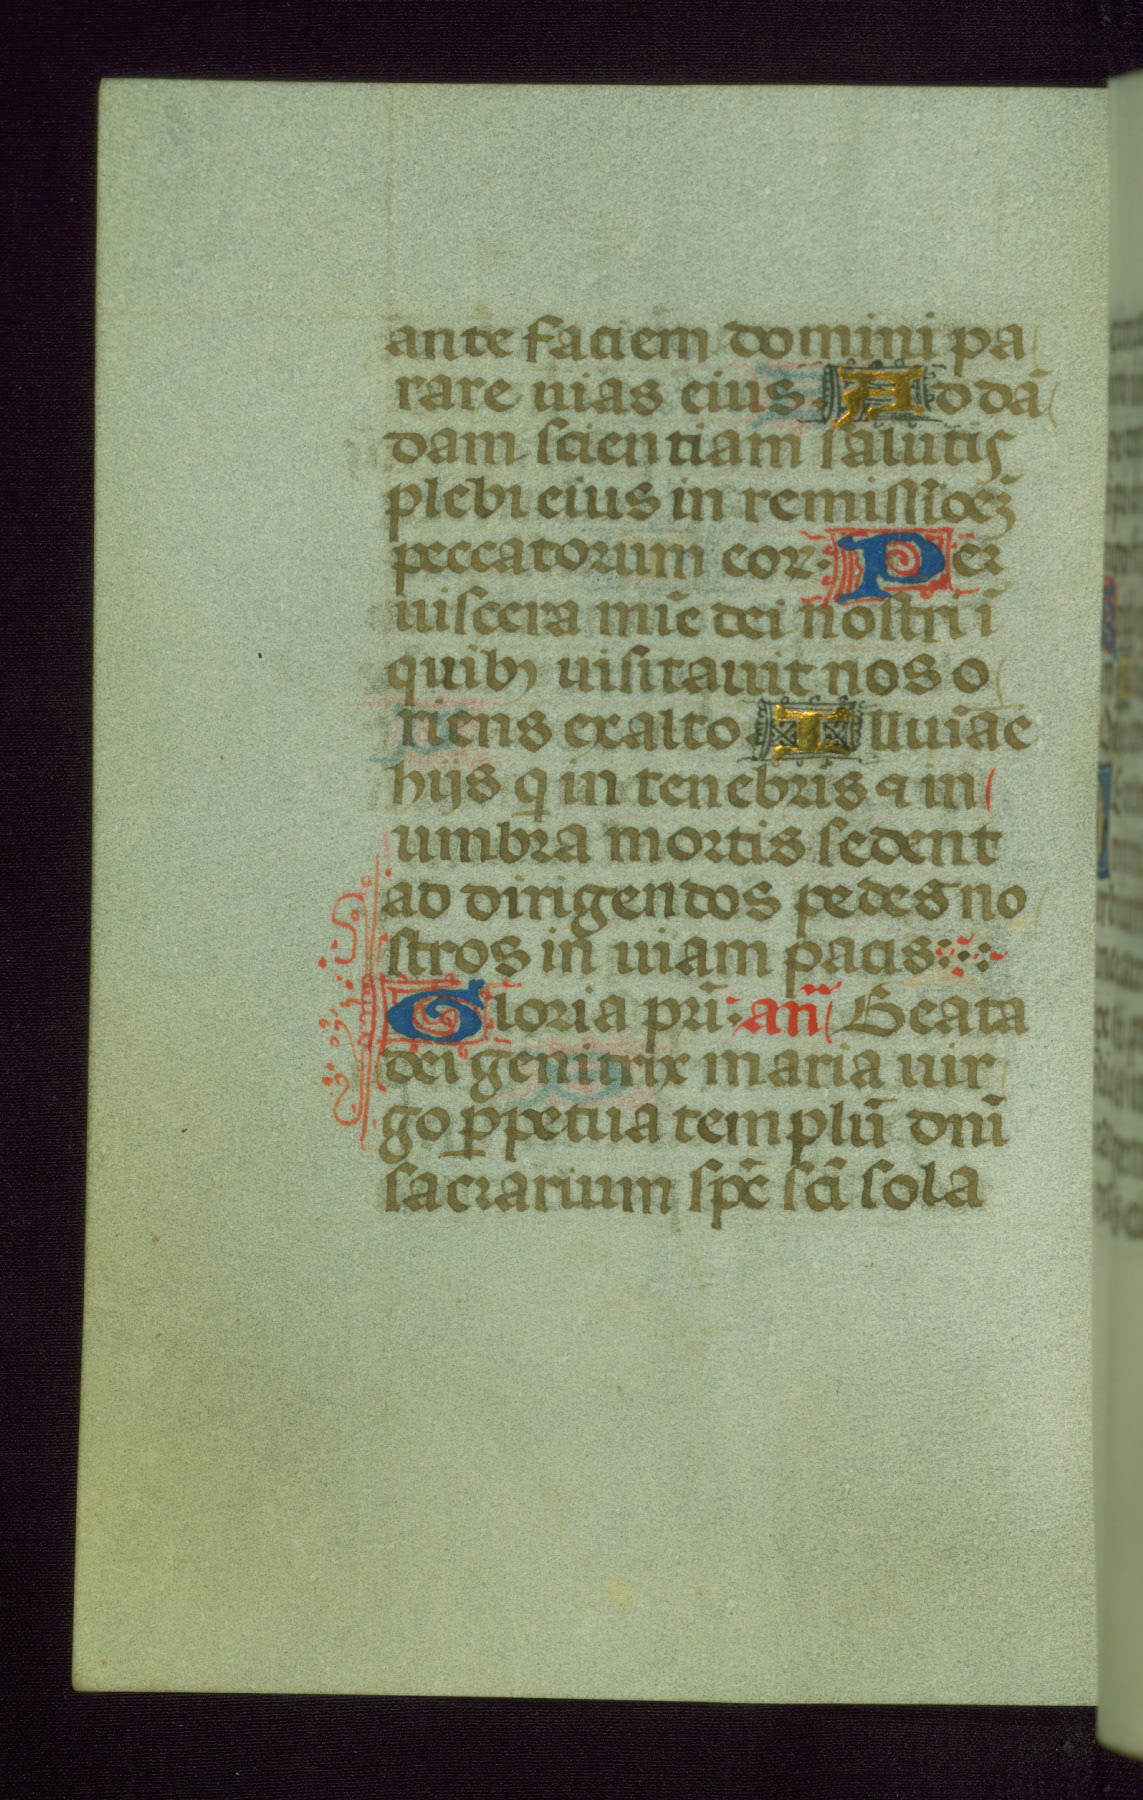 ante faciem domini pa
rare uias eius. Ad dā
dam scientiam salutis
plebi eius in remissiōēȝ
peccatorum eor. Per
uiscera mīe dei nostri ī
quibꝫ uisitauit nos o
riens exalto Illuīae
hijs qͥ in tenebris ⁊ in
umbra mortis sedent
ad dirigendos pedes no
stros in uiam pacis
Gloria prī. an̄ Beata
dei genitrix maria uir
go ꝑpetua templū dnī
sacrarium sp̄c sc̄i sola